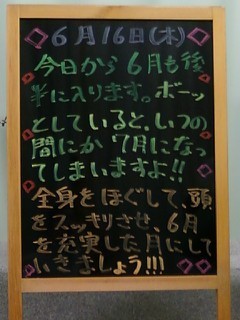 6月16日(木)
今日から6月も後
半に入ります。ボーッ
としていると、いつの
間にか7月になっ
てしまいますよ!!
全身をほぐして、頭
をスッキリさせ、6月
を充実した月にして
いきましょう!!!